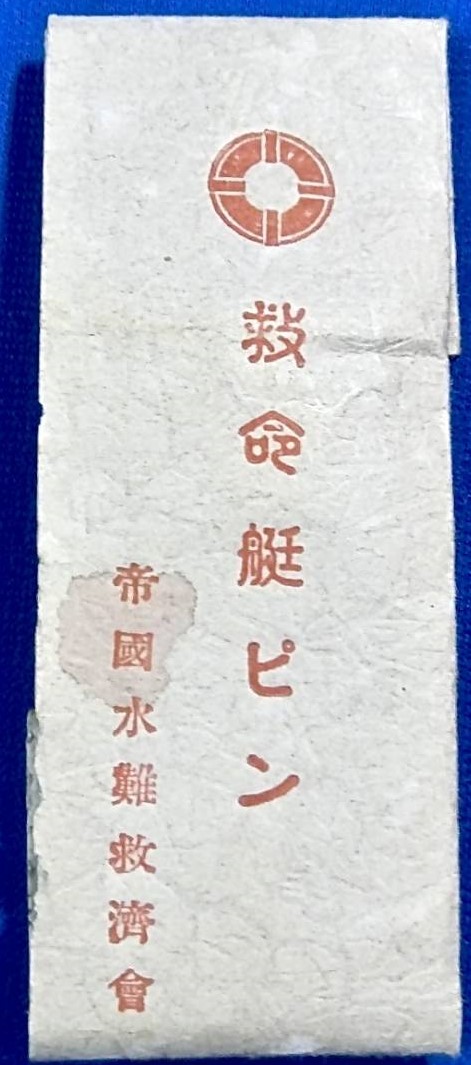 救命艇ピン
帝國水難救濟會